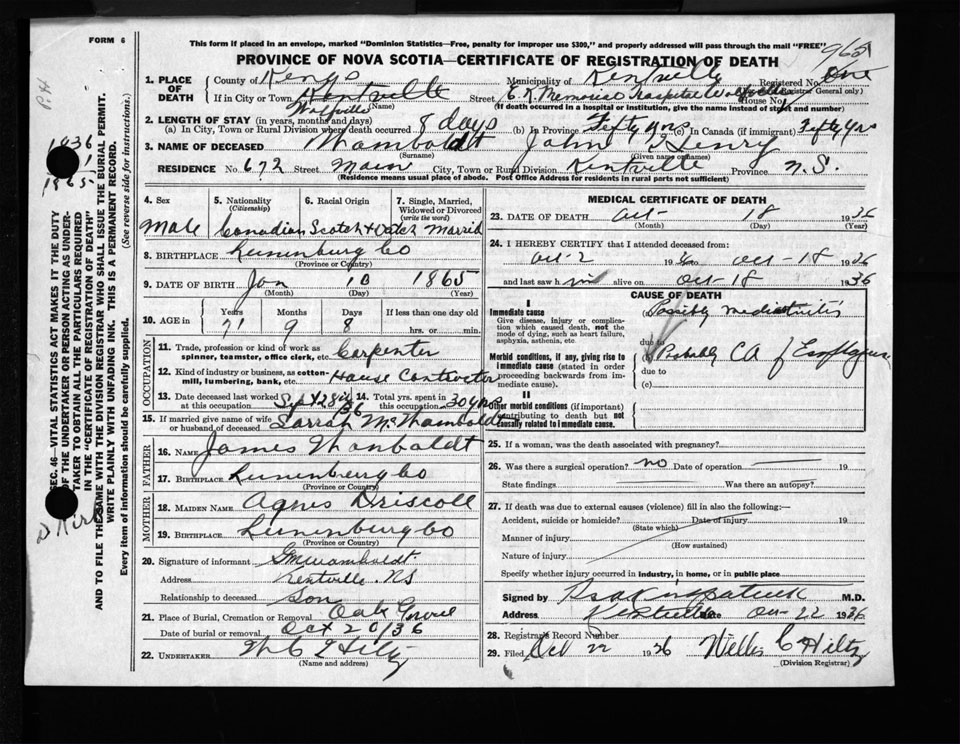 FORM 6
This form if placed in an envelope, marked "Dominion Statistics—Free, penalty for improper use $300," and properly addressed will pass through the mail "FREE"
PROVINCE OF NOVA SCOTIA—CERTIFICATE OF REGISTRATION OF DEATH
1. PLACE OF DEATH
County of Kings Municipality of Kentville Registered No. One
(For use of Registrar General only)
If in City or Town Kentville Street E.K. Memorial Hospital Wolfville House No.
(Name) (If death occurred in a hospital or institution, give the name instead of street and number)
Wolfville
2. LENGTH OF STAY (in years, months and days)
(a) In City, Town or Rural Division where death occurred 8 days (b) In Province Fifty yrs (c) In Canada (if immigrant) Fifty yrs
3. NAME OF DECEASED Whamboldt John Henry
(Surname) (Given name or names)
RESIDENCE No. 672 Street Main City, Town or Rural Division Kentville Province N.S.
(Residence means usual place of abode. Post Office Address for residents in rural parts not sufficient)
4. Sex
Male
5. Nationality
(Citizenship)
Canadian
6. Racial Origin
Scotch & Dutch
7. Single, Married, Widowed or Divorced
(write the word)
Married
8. BIRTHPLACE Lunenburg Co
(Province or Country)
9. DATE OF BIRTH Jan 10 1865
(Month) (Day) (Year)
10. AGE in Years Months Days If less than one day
71 9 8 hrs. or min.
OCCUPATION
11. Trade, profession or kind of work as
spinner, teamster, office clerk, etc. Carpenter
12. Kind of industry or business, as cotton-
mill, lumbering, bank, etc. House Contractor
13. Date deceased last worked at this occupation Sept 28th 36
14. Total yrs. spent in this occupation 30 yrs
15. If married give name of wife or husband of deceased Sarrah M Whamboldt
FATHER
16. NAME James Whamboldt
17. BIRTHPLACE Lunenburg Co
(Province or Country)
MOTHER
18. MAIDEN NAME Agnes Driscoll
19. BIRTHPLACE Lunenburg Co
(Province or Country)
20. Signature of informant G M Whamboldt
Address Kentville. NS
Relationship to deceased Son
21. Place of Burial, Cremation or Removal Oak Grove
Date of burial or removal Oct 20/36
22. UNDERTAKER W C Hiltz
(Name and address)
MEDICAL CERTIFICATE OF DEATH
23. DATE OF DEATH Oct 18 1936
(Month) (Day) (Year)
24. I HEREBY CERTIFY that I attended deceased from:
Oct-2 1936 to Oct-18 1936
and last saw him alive on Oct-18 1936
CAUSE OF DEATH
I
Immediate cause
Give disease, injury or complication which caused death, not the mode of dying, such as heart failure, asphyxia, asthenia, etc.
(a) Possibly mediastinitis
due to
Morbid conditions, if any, giving rise to immediate cause (stated in order proceeding backwards from immediate cause).
(b) Probably CA of Esophagus
due to
(c)
II
Other morbid conditions (if important) contributing to death but not causally related to immediate cause.
25. If a woman, was the death associated with pregnancy?
26. Was there a surgical operation? no Date of operation 19
State findings Was there an autopsy?
27. If death was due to external causes (violence) fill in also the following:
Accident, suicide or homicide? Date of injury 19
(State which)
Manner of injury
(How sustained)
Nature of injury
Specify whether injury occurred in industry, in home, or in public place
Signed by Kirkpatrick M.D.
Address Kentville Date Oct-22 1936
28. Registrar's Record Number
29. Filed Oct 22 1936 Willis C Hiltz
(Division Registrar)
SEC. 46—VITAL STATISTICS ACT MAKES IT THE DUTY
OF THE UNDERTAKER OR PERSON ACTING AS UNDER-
TAKER TO OBTAIN ALL THE PARTICULARS REQUIRED
IN THE "CERTIFICATE OF REGISTRATION OF DEATH"
AND TO FILE THE SAME WITH THE DIVISION REGISTRAR WHO SHALL ISSUE THE BURIAL PERMIT.
WRITE PLAINLY WITH UNFADING INK. THIS IS A PERMANENT RECORD.
Every item of information should be carefully supplied. (See reverse side for instructions.)
P.H
1936
1865